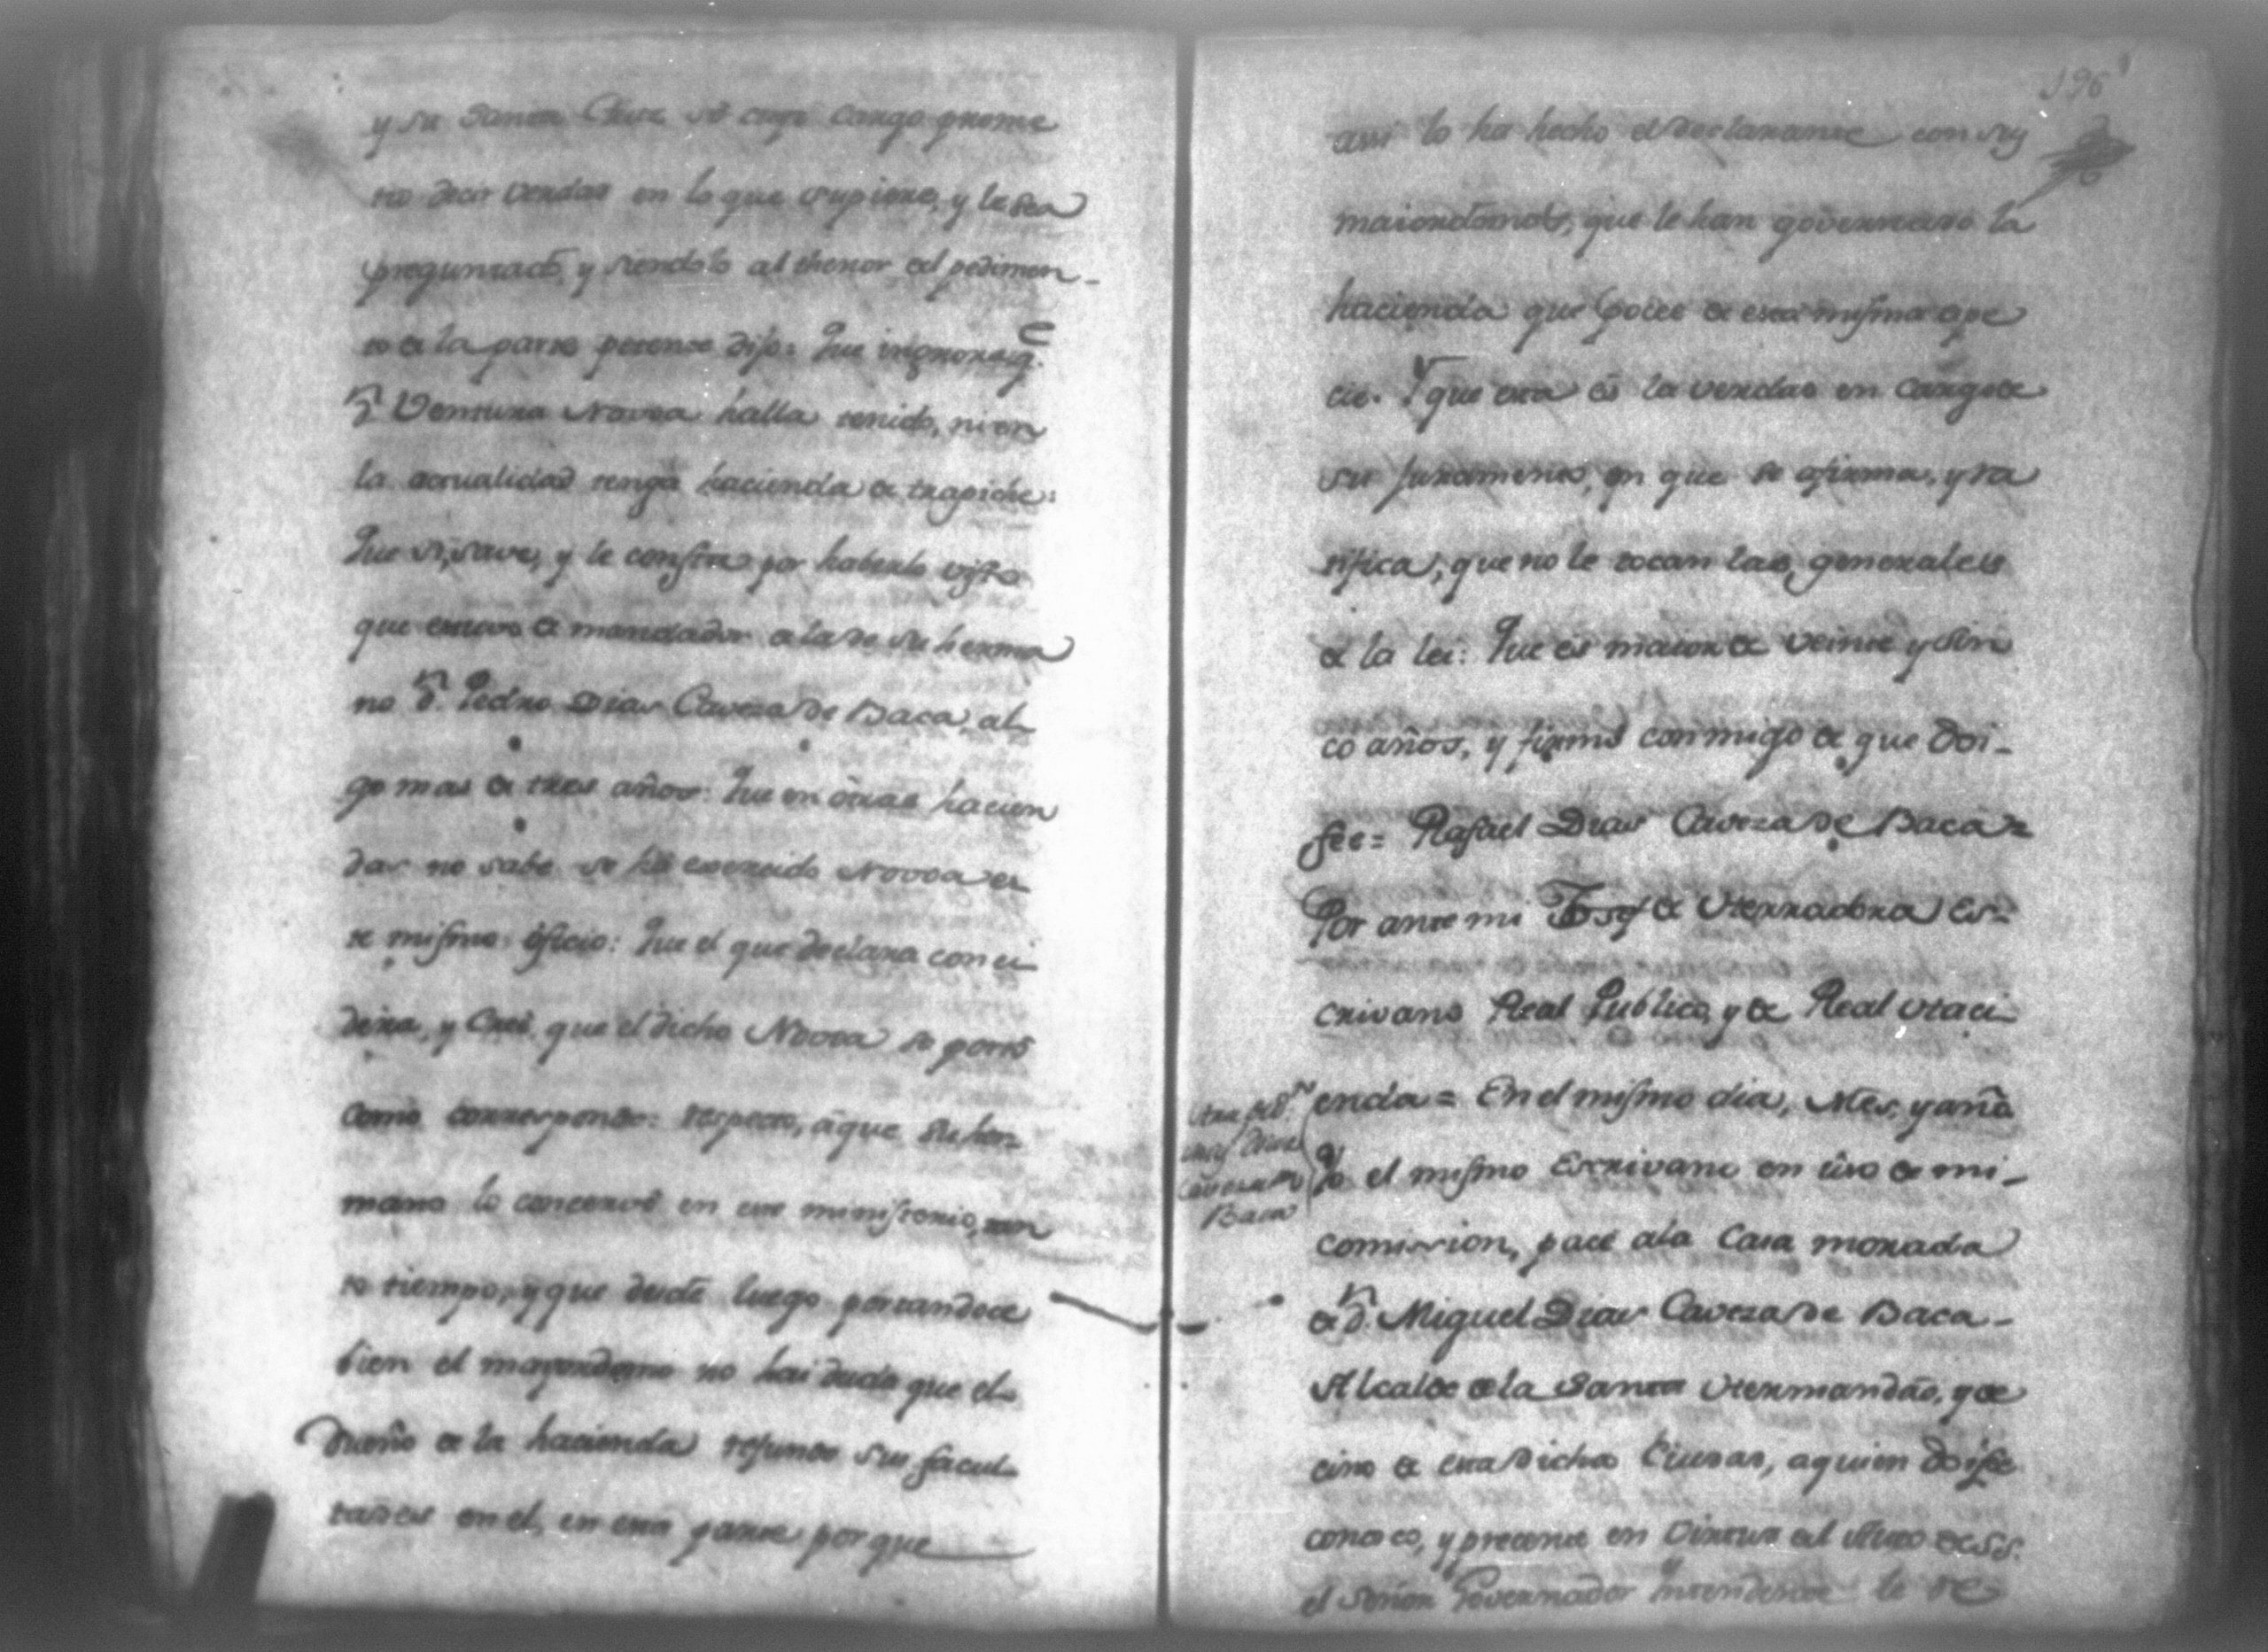 y su Santa Cruz so cuyo cargo prome
tio decir verdad en lo que supiere, y le sea
preguntado, y siendolo al thenor del pedimen-
to de la parte dijo: Que ignora q.e
D.n Ventura Novoa halla tenido, ni en
la actualidad tenga hacienda de trapiche:
Que si, save, y le consta por haberlo visto
que estuvo de mandador de la de su herma
no d.n Pedro Dias Caveza de Baca, al-
go mas de tres años: Que en otras hacien
das no sabe se ha exercido Novoa es
te mismo oficio: Que el que declara conci
dera, y Cree que el dicho Novoa se portó
como corresponde: respecto, áque su her-
mano lo concervó en ese ministerio, tan
to tiempo, y que desde luego portandoce
bien el mayordomo no hai duda que el
dueño de la hacienda refunde sus facul-
tades en el, en esta parte por que
196
assi lo ha hecho el declarante con sus
maiordomos, que le han governado la
hacienda que posee de esta misma espe
cie. Y que esta es la verdad en cargo de
su juramento, en que se afirma, y ra
tifica; que no le tocan las generales
de la lei: Que es maior de veinte y sin
co años, y firmó conmigo de que doi-
fee= Rafael Dias Caveza de Baca=
Por ante mi Josef de Herradora Es-
crivano Real Publico, y de Real Haci-
enda= En el mismo dia, Mes, y año
Yo el mismo Escrivano en uso de mi-
comission, pacé ala Casa morada
de d.n Miguel Dias Caveza de Baca-
Alcalde de la Santa Hermandad, y ve
cino de esta dicha Ciudad, a quien doi fee
conosco, y precente en
el señor Governador Yntendente le re
Caveza de
Baca